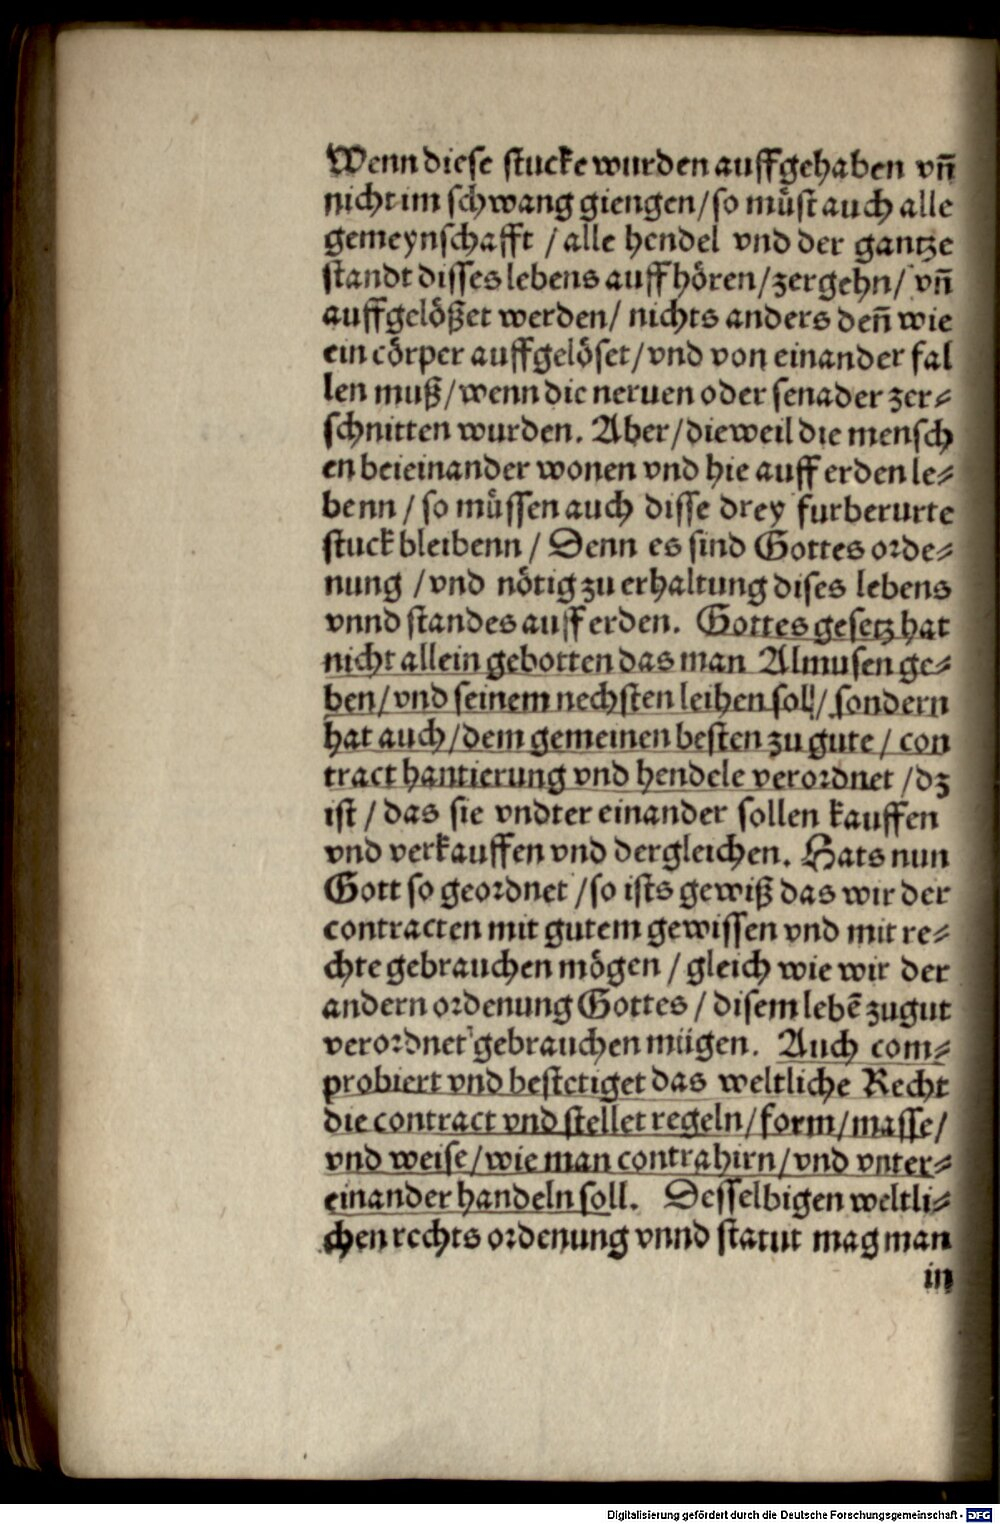 Wenn diese stucke wurden auffgehaben vn̄
nicht im schwang giengen/so müst auch alle
gemeynschafft / alle hendel vnd der gantze
standt disses lebens auffhören/zergehn/ vn̄
auffgelößet werden/ nichts anders den̄ wie
ein cörper auffgelöset/vnd von einander fal
len muß/wenn die neruen oder senader zer⸗
schnitten wurden. Aber/dieweil die mensch
en beieinander wonen vnd hie auff erden le⸗
benn / so müssen auch disse drey furberurte
stuck bleibenn / Denn es sind Gottes orde⸗
nung /vnd nötig zu erhaltung dises lebens
vnnd standes auff erden. Gottes gesetz hat
nicht allein gebotten das man Almusen ge⸗
ben/vnd seinem nechsten leihen soll/ sondern
hat auch/dem gemeinen besten zu gute / con
tract hantierung vnd hendele verordnet /dz
ist / das sie vndter einander sollen kauffen
vnd verkauffen vnd dergleichen. Hats nun
Gott so geordnet /so ists gewiß das wir der
contracten mit gutem gewissen vnd mit re⸗
chte gebrauchen mögen / gleich wie wir der
andern ordenung Gottes / disem lebē zugut
verordnet gebrauchen mügen. Auch com⸗
probiert vnd bestetiget das weltliche Recht
die contract vnd stellet regeln/form/masse/
vnd weise/wie man contrahirn/vnd vnter⸗
einander handeln soll. Desselbigen weltli⸗
chen rechts ordenung vnnd statut mag man
in
Digitalisierung gefördert durch die Deutsche Forschungsgemeinschaft - DFG